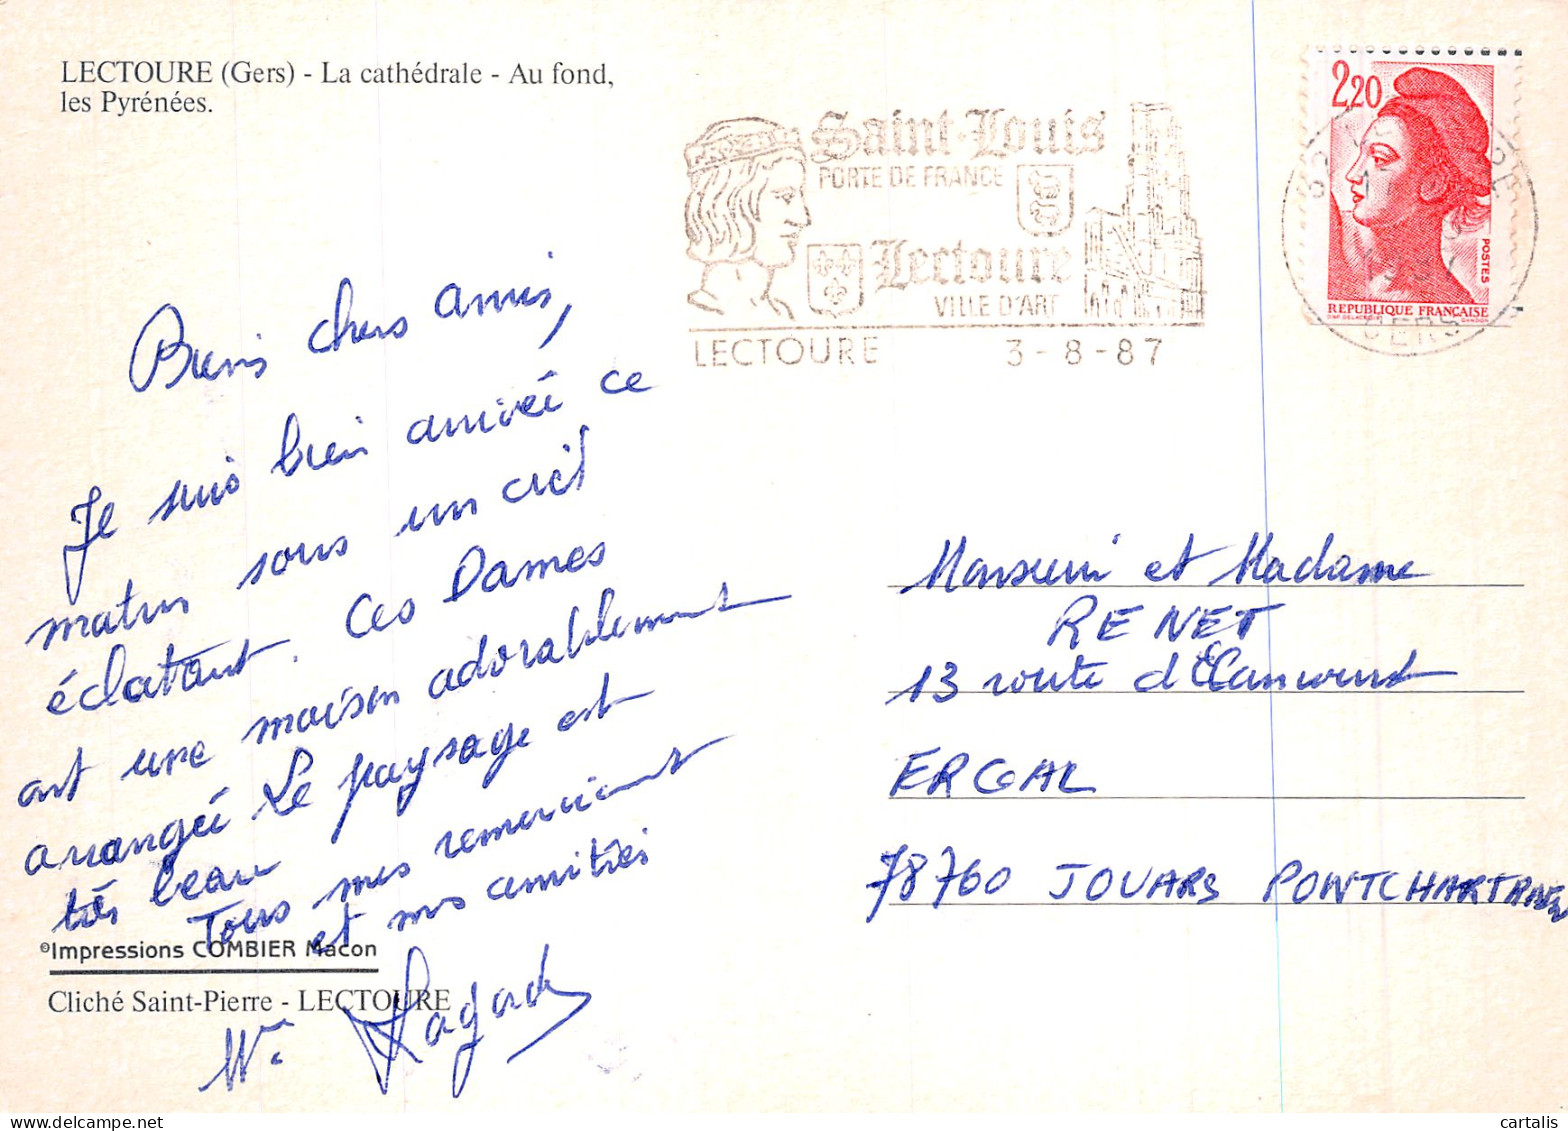 LECTOURE (Gers) - La cathédrale - Au fond,
les Pyrénées.
Saint-Louis
PORTE DE FRANCE
Lectoure
VILLE D'ART
LECTOURE 3-8-87
2,20
POSTES
REPUBLIQUE FRANÇAISE
GERS
chers amis,
Je suis bien arrivée ce
matin sous un ciel
éclatant. Ces Dames
ont une maison adorablement
arrangée Le paysage est
très beau
Tous mes remerciements
et mes amitiés
©Impressions COMBIER Macon
Cliché Saint-Pierre - LECTOURE
Monsieur et Madame
RENET
13 route d'Elancourt
ERGAL
78760 JOUARS PONTCHARTRAIN
cartalis